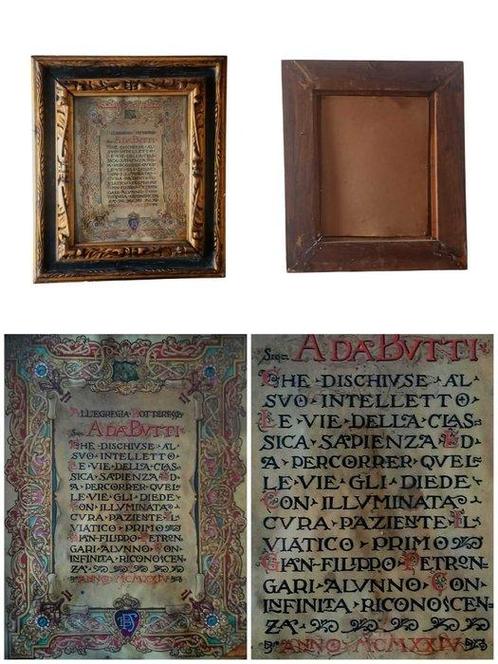 ALLEGREGIA
ADA BVTTI
CHE DISCHIVSE AL
SVO INTELLETTO
LE VIE DELLA CLAS
SICA SAPIENZA ED
A PERCORRER QVEL
LE VIE GLI DIEDE
CON ILLVMINATA
CVRA PAZIENTE IL
VIATICO PRIMO
GIAN FILIPPO PETRON
GARI ALVNNO CON
INFINITA RICONOSCEN
ZA
ANNO MCMXXIV
ADA BVTTI
CHE DISCHIVSE AL
SVO INTELLETTO
LE VIE DELLA CLAS
SICA SAPIENZA ED
A PERCORRER QVEL
LE VIE GLI DIEDE
CON ILLVMINATA
CVRA PAZIENTE IL
VIATICO PRIMO
GIAN FILIPPO PETRON
GARI ALVNNO CON
INFINITA RICONOSCEN
ZA
ANNO MCMXXIV